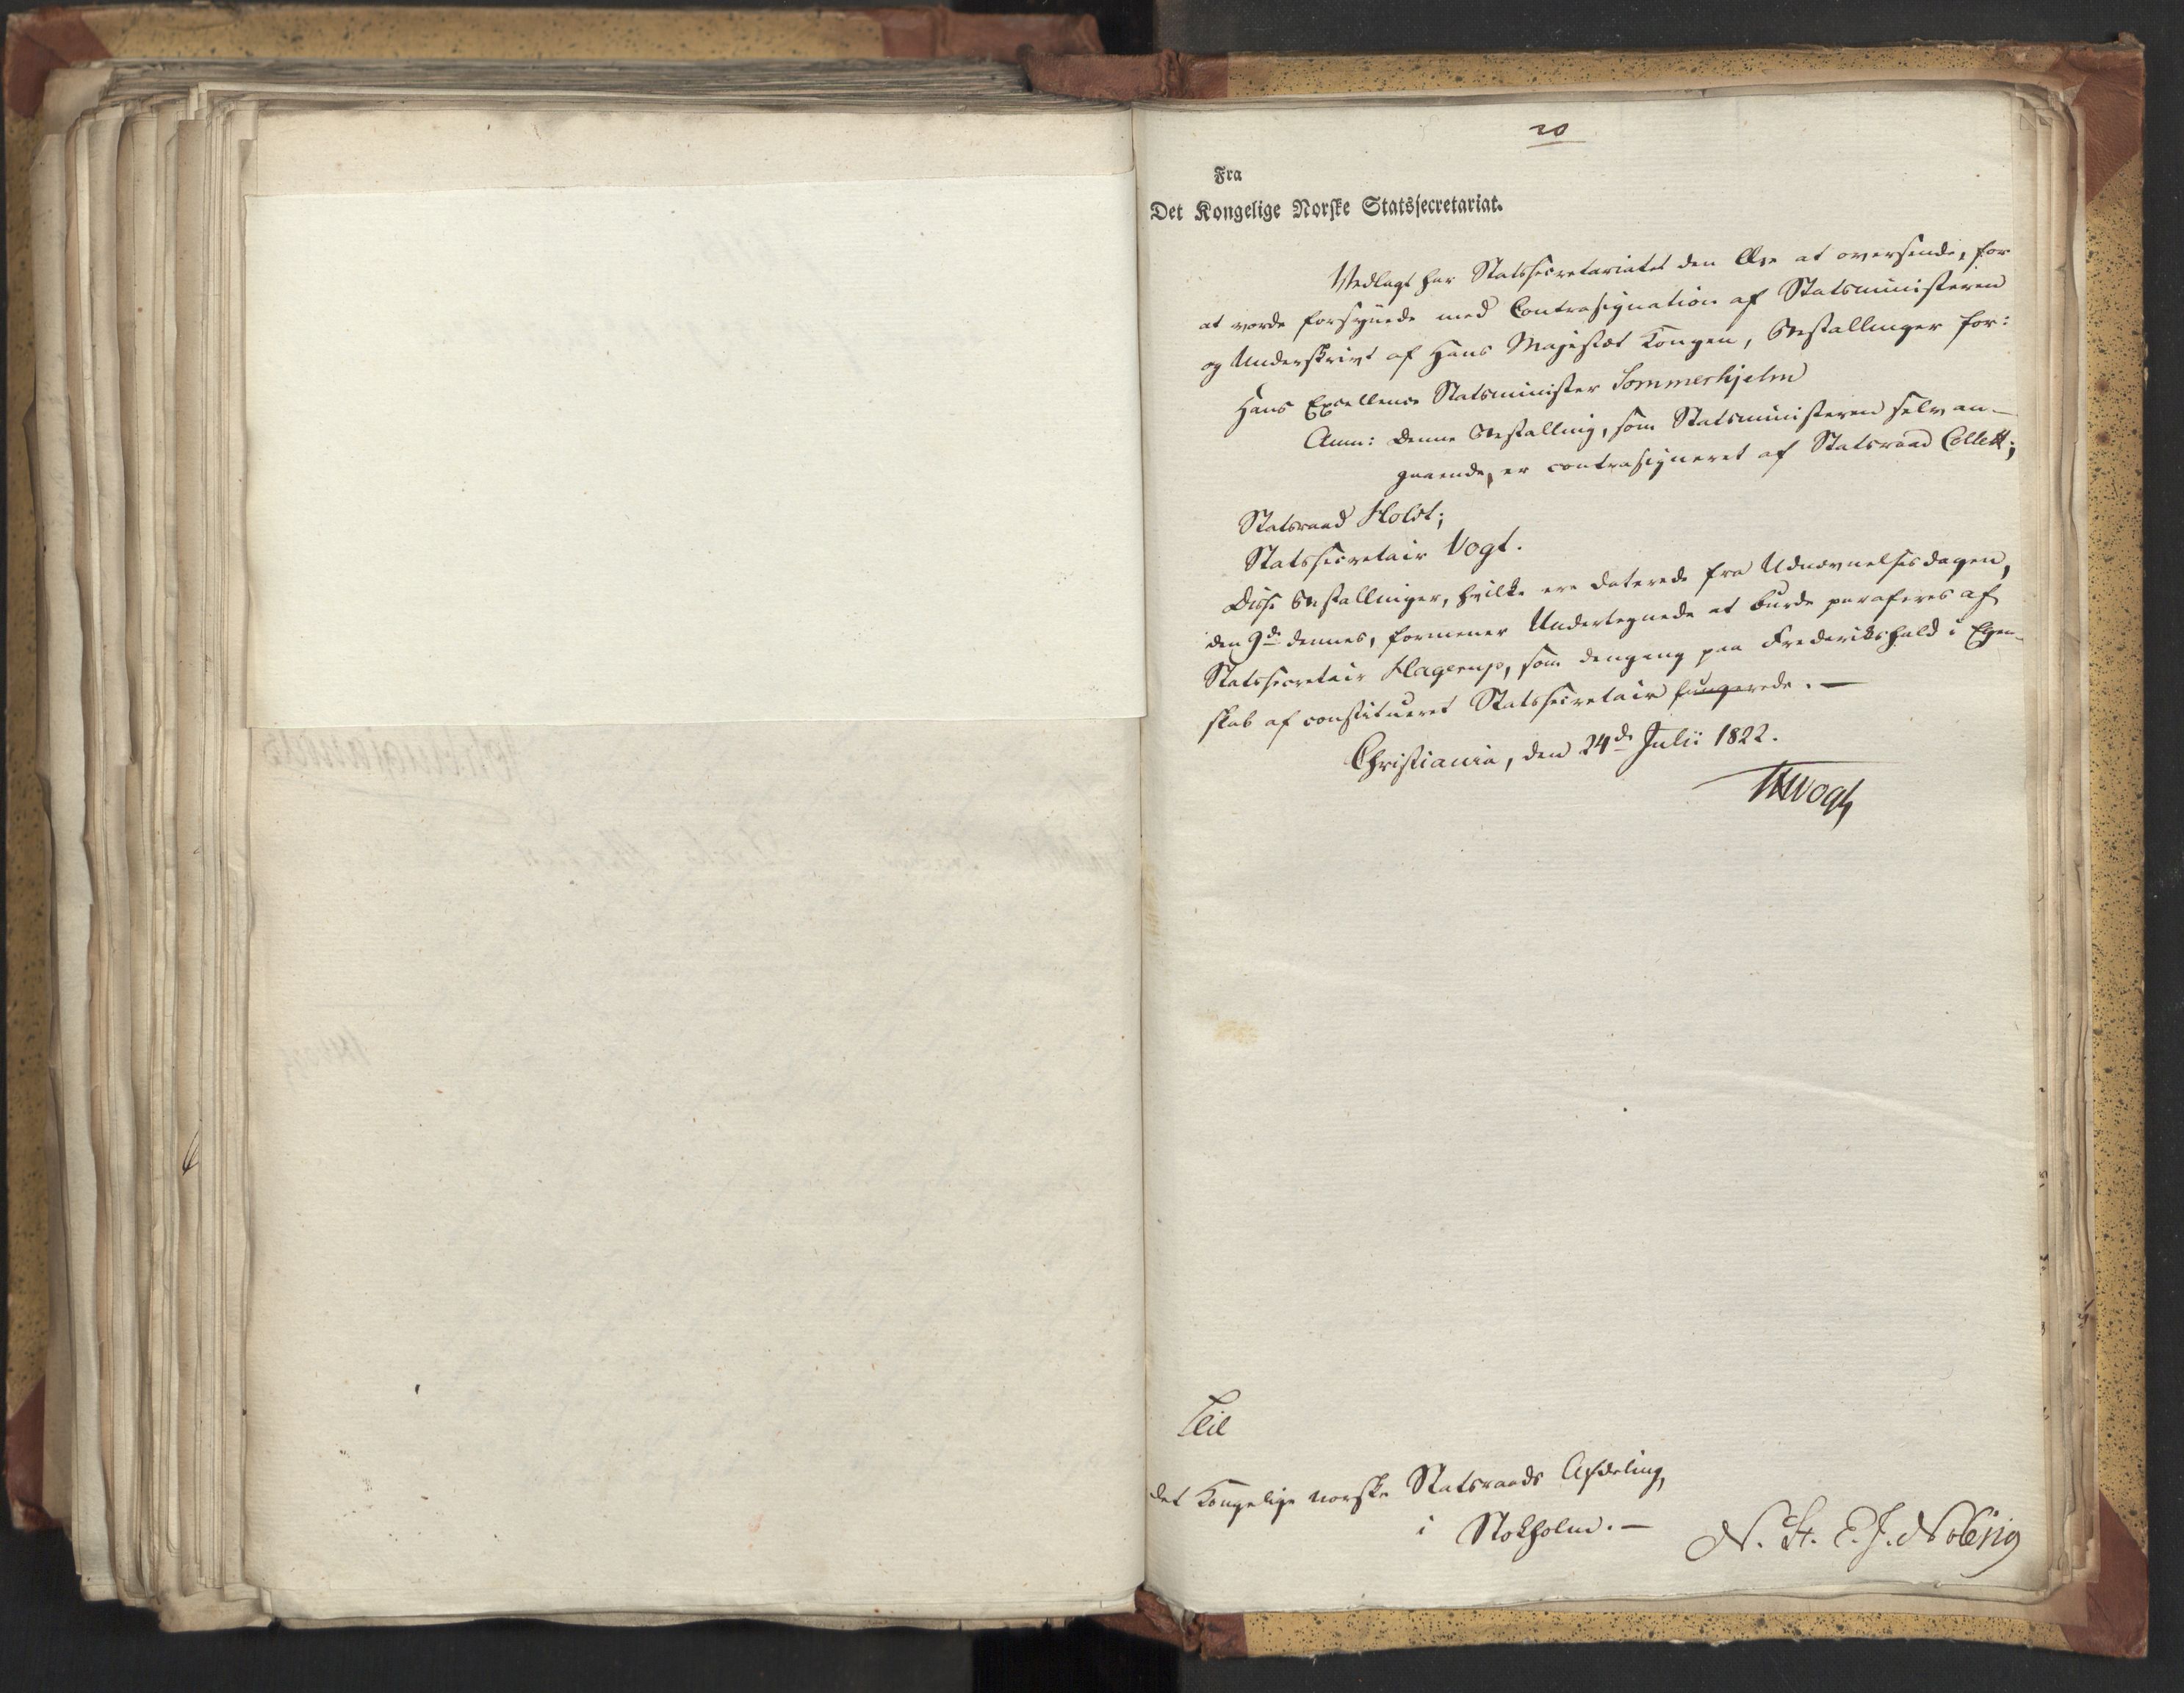 20
Fra
Det Kongelige Norske Statssecretariat.
Vedlagt har Statssecretariatet den Ære at oversende, for
at vorde forsynede med Contrasignation af Statsministeren
og Underskrivt af Hans Majestæt Kongen, Bestallinger for:
Hans Excellence Statsminister Sommerhjelm
Anm: Denne Bestalling, som Statsministeren selv an-
gaaende, er contrasigneret af Statsraad Collett;
Statsraad Holst;
Statssecretair Vogt.
Disse Bestallinger, hvilke ere daterede fra Udnævnelsesdagen,
den 9de dennes, formener Undertegnede at burde paraferes af
Statssecretair Hagerup, som dengang paa Frederikshald i Egen-
skab af constitueret Statssecretair fungerede. —
Christiania, den 24de Julii 1822.
Vogt
Til
det Kongelige norske Statsraads Afdeling,
i Stokholm. —
N. St. E. J.